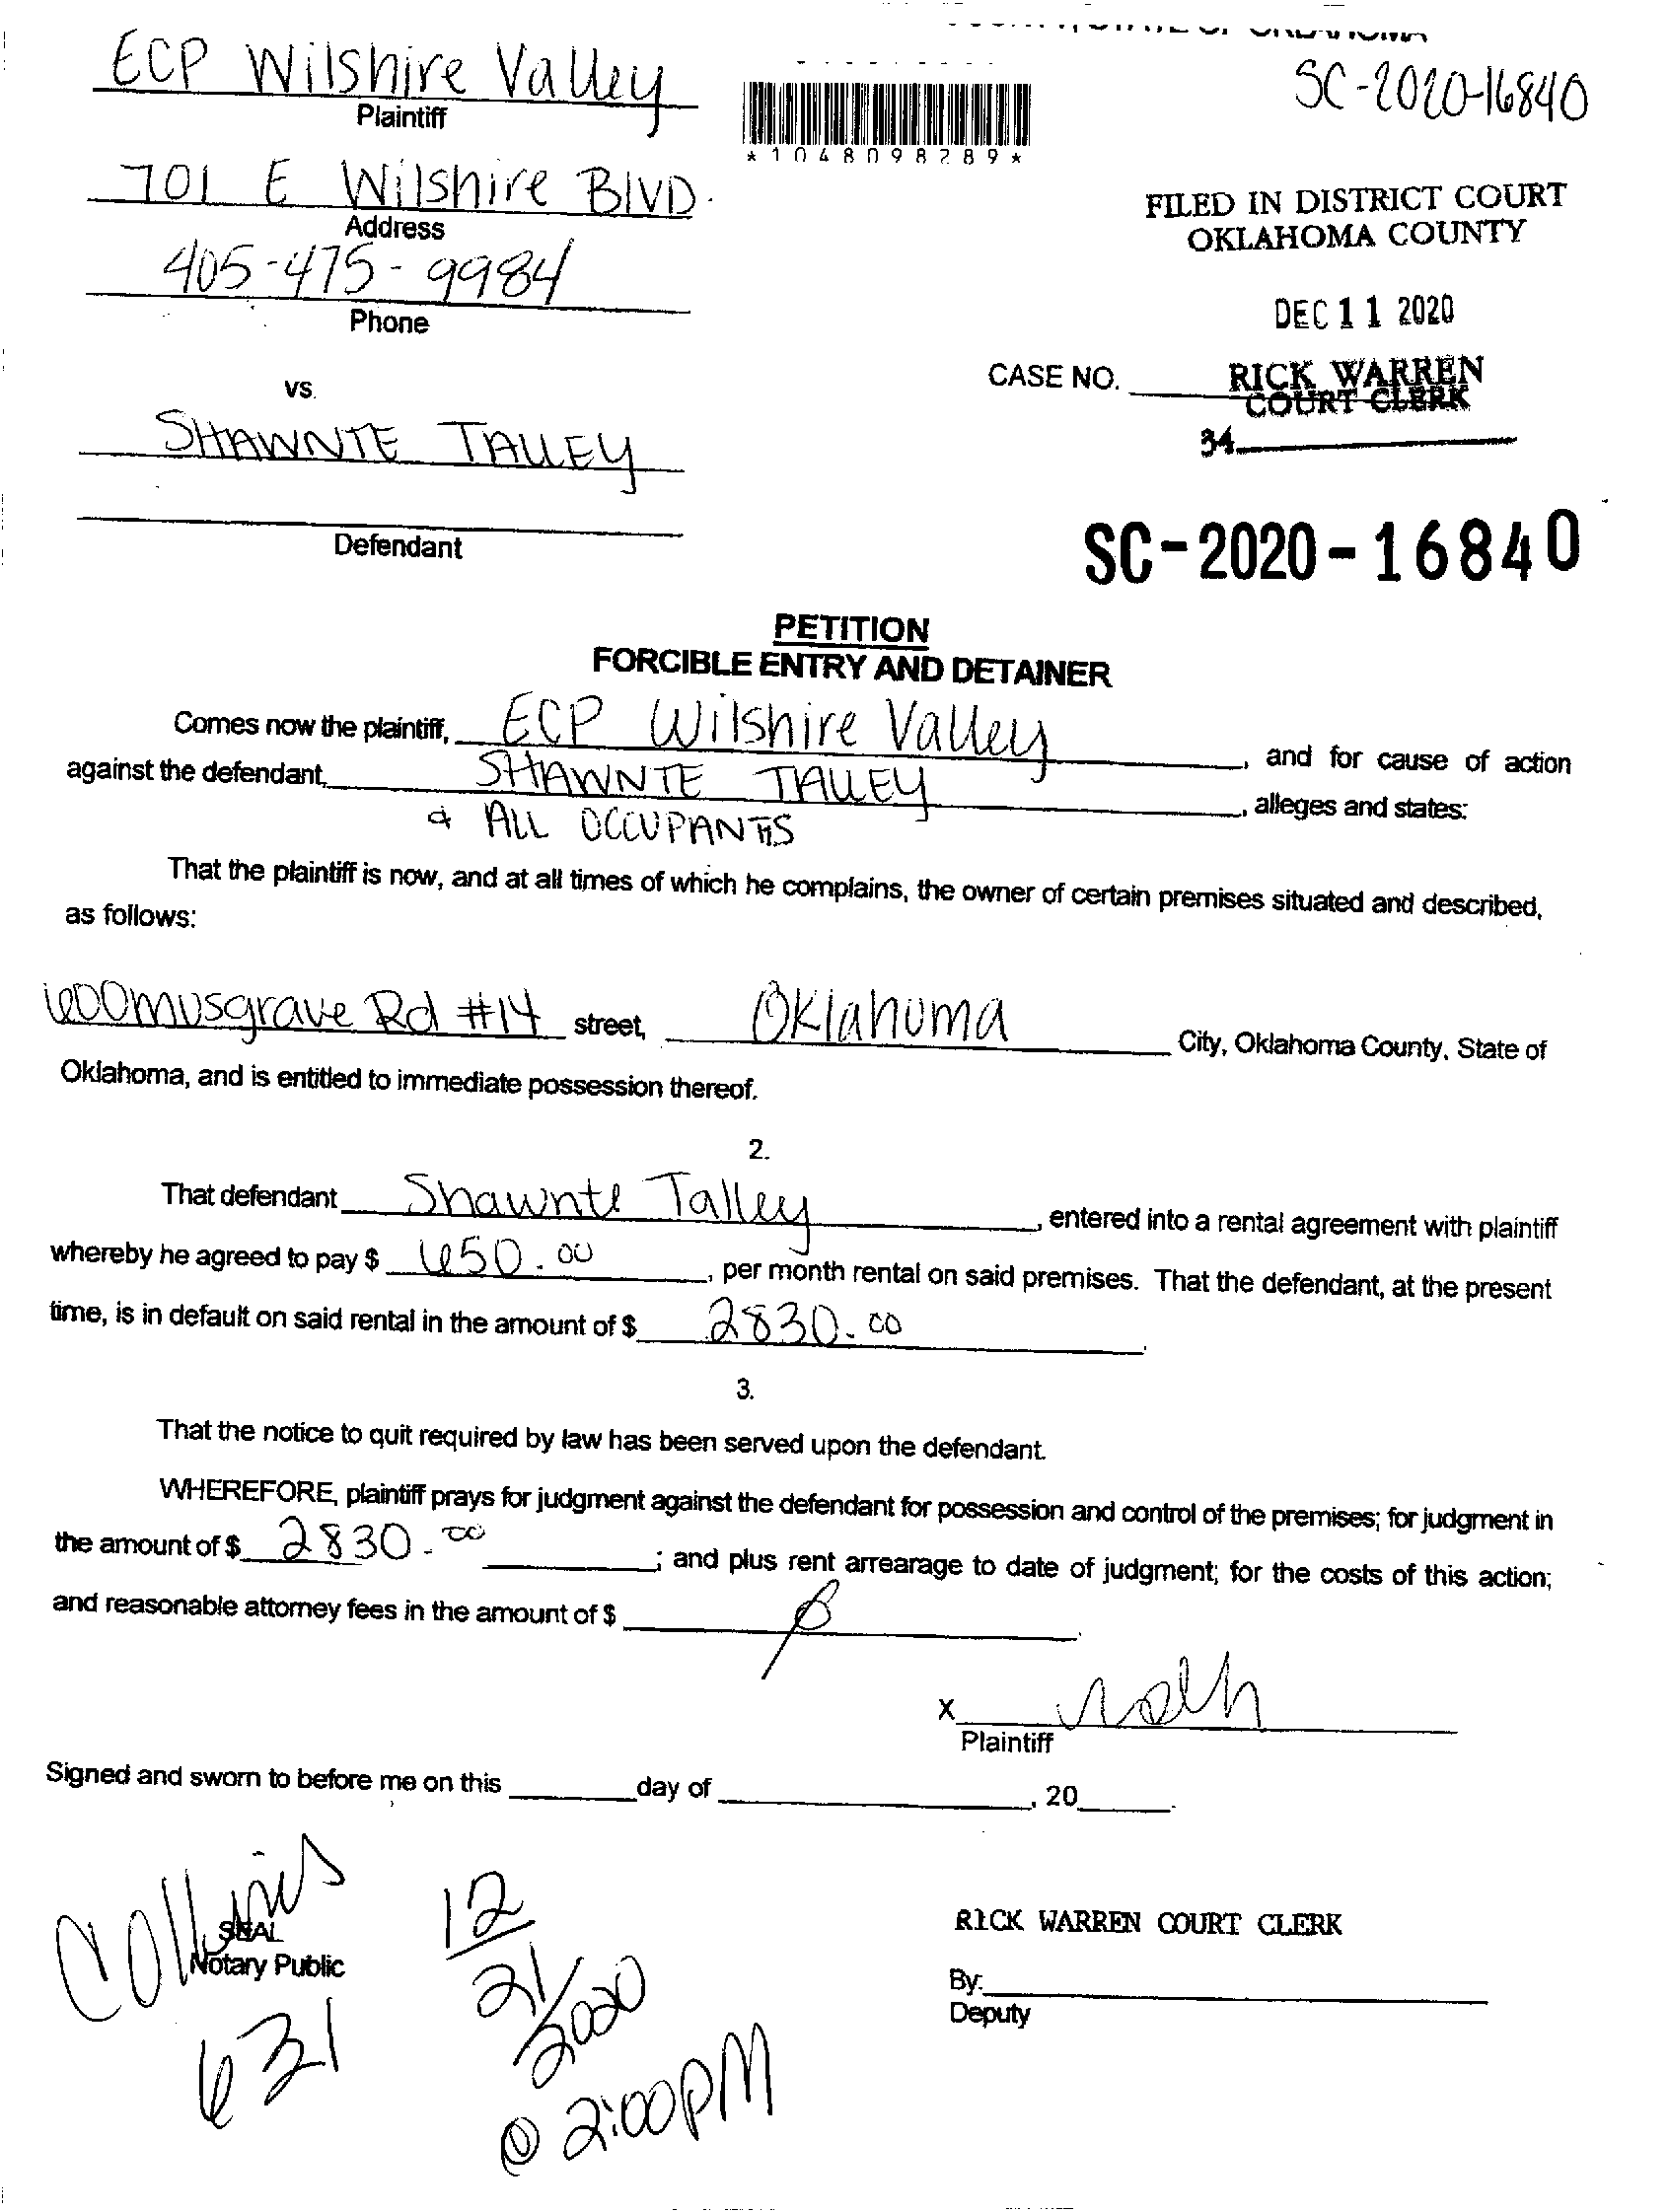 ECP Wilshire Valley
Plaintiff
701 E Wilshire BLVD.
Address
405-475-9984
Phone
vs.
SHAWNTE TALLEY
Defendant
*1048098289*
SC-2020-16840
FILED IN DISTRICT COURT
OKLAHOMA COUNTY
DEC 11 2020
CASE NO. RICK WARREN
COURT CLERK
34
SC-2020-16840
PETITION
FORCIBLE ENTRY AND DETAINER
Comes now the plaintiff, ECP Wilshire Valley, and for cause of action
against the defendant, SHAWNTE TALLEY, alleges and states:
& ALL OCCUPANTS
That the plaintiff is now, and at all times of which he complains, the owner of certain premises situated and described,
as follows:
600 Musgrave Rd #14 street, Oklahoma City, Oklahoma County, State of
Oklahoma, and is entitled to immediate possession thereof.
2.
That defendant Shawnte Talley, entered into a rental agreement with plaintiff
whereby he agreed to pay $ 650.00, per month rental on said premises. That the defendant, at the present
time, is in default on said rental in the amount of $ 2830.00.
3.
That the notice to quit required by law has been served upon the defendant.
WHEREFORE, plaintiff prays for judgment against the defendant for possession and control of the premises; for judgment in
the amount of $ 2830.00; and plus rent arrearage to date of judgment; for the costs of this action;
and reasonable attorney fees in the amount of $ Ø.
X
Plaintiff
Signed and sworn to before me on this day of , 20 .
Collins
SEAL
Notary Public
631
12/21/2020
@ 2:00PM
RICK WARREN COURT CLERK
By:
Deputy